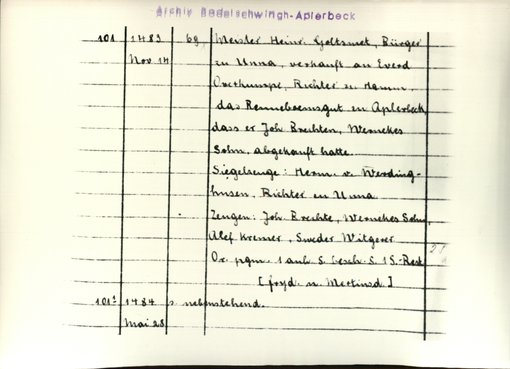 Archiv Bodelschwingh-Aplerbeck
101 1483 69, Meister Heinr. Goltsmet, Bürger
Nov 14 zu Unna, verkauft an Everd
Overhunspe, Richter zu Hamm,
das Renneboemsgut zu Aplerbeck
dass er Joh Brechten, Wernekes
Sohn, abgekauft hatte.
Siegelzeuge: Herm. v. Werding-
husen, Richter zu Unna
Zeugen: Joh Brechte, Wernekes Sohn,
Alef Kremer, Sweder Witgerer
Or. pgm. 1 anh. S. besch. S. 1 S.-Rest
[fryd. n. Mertinsd.]
101² 1484 s. nebenstehend.
Mai 28